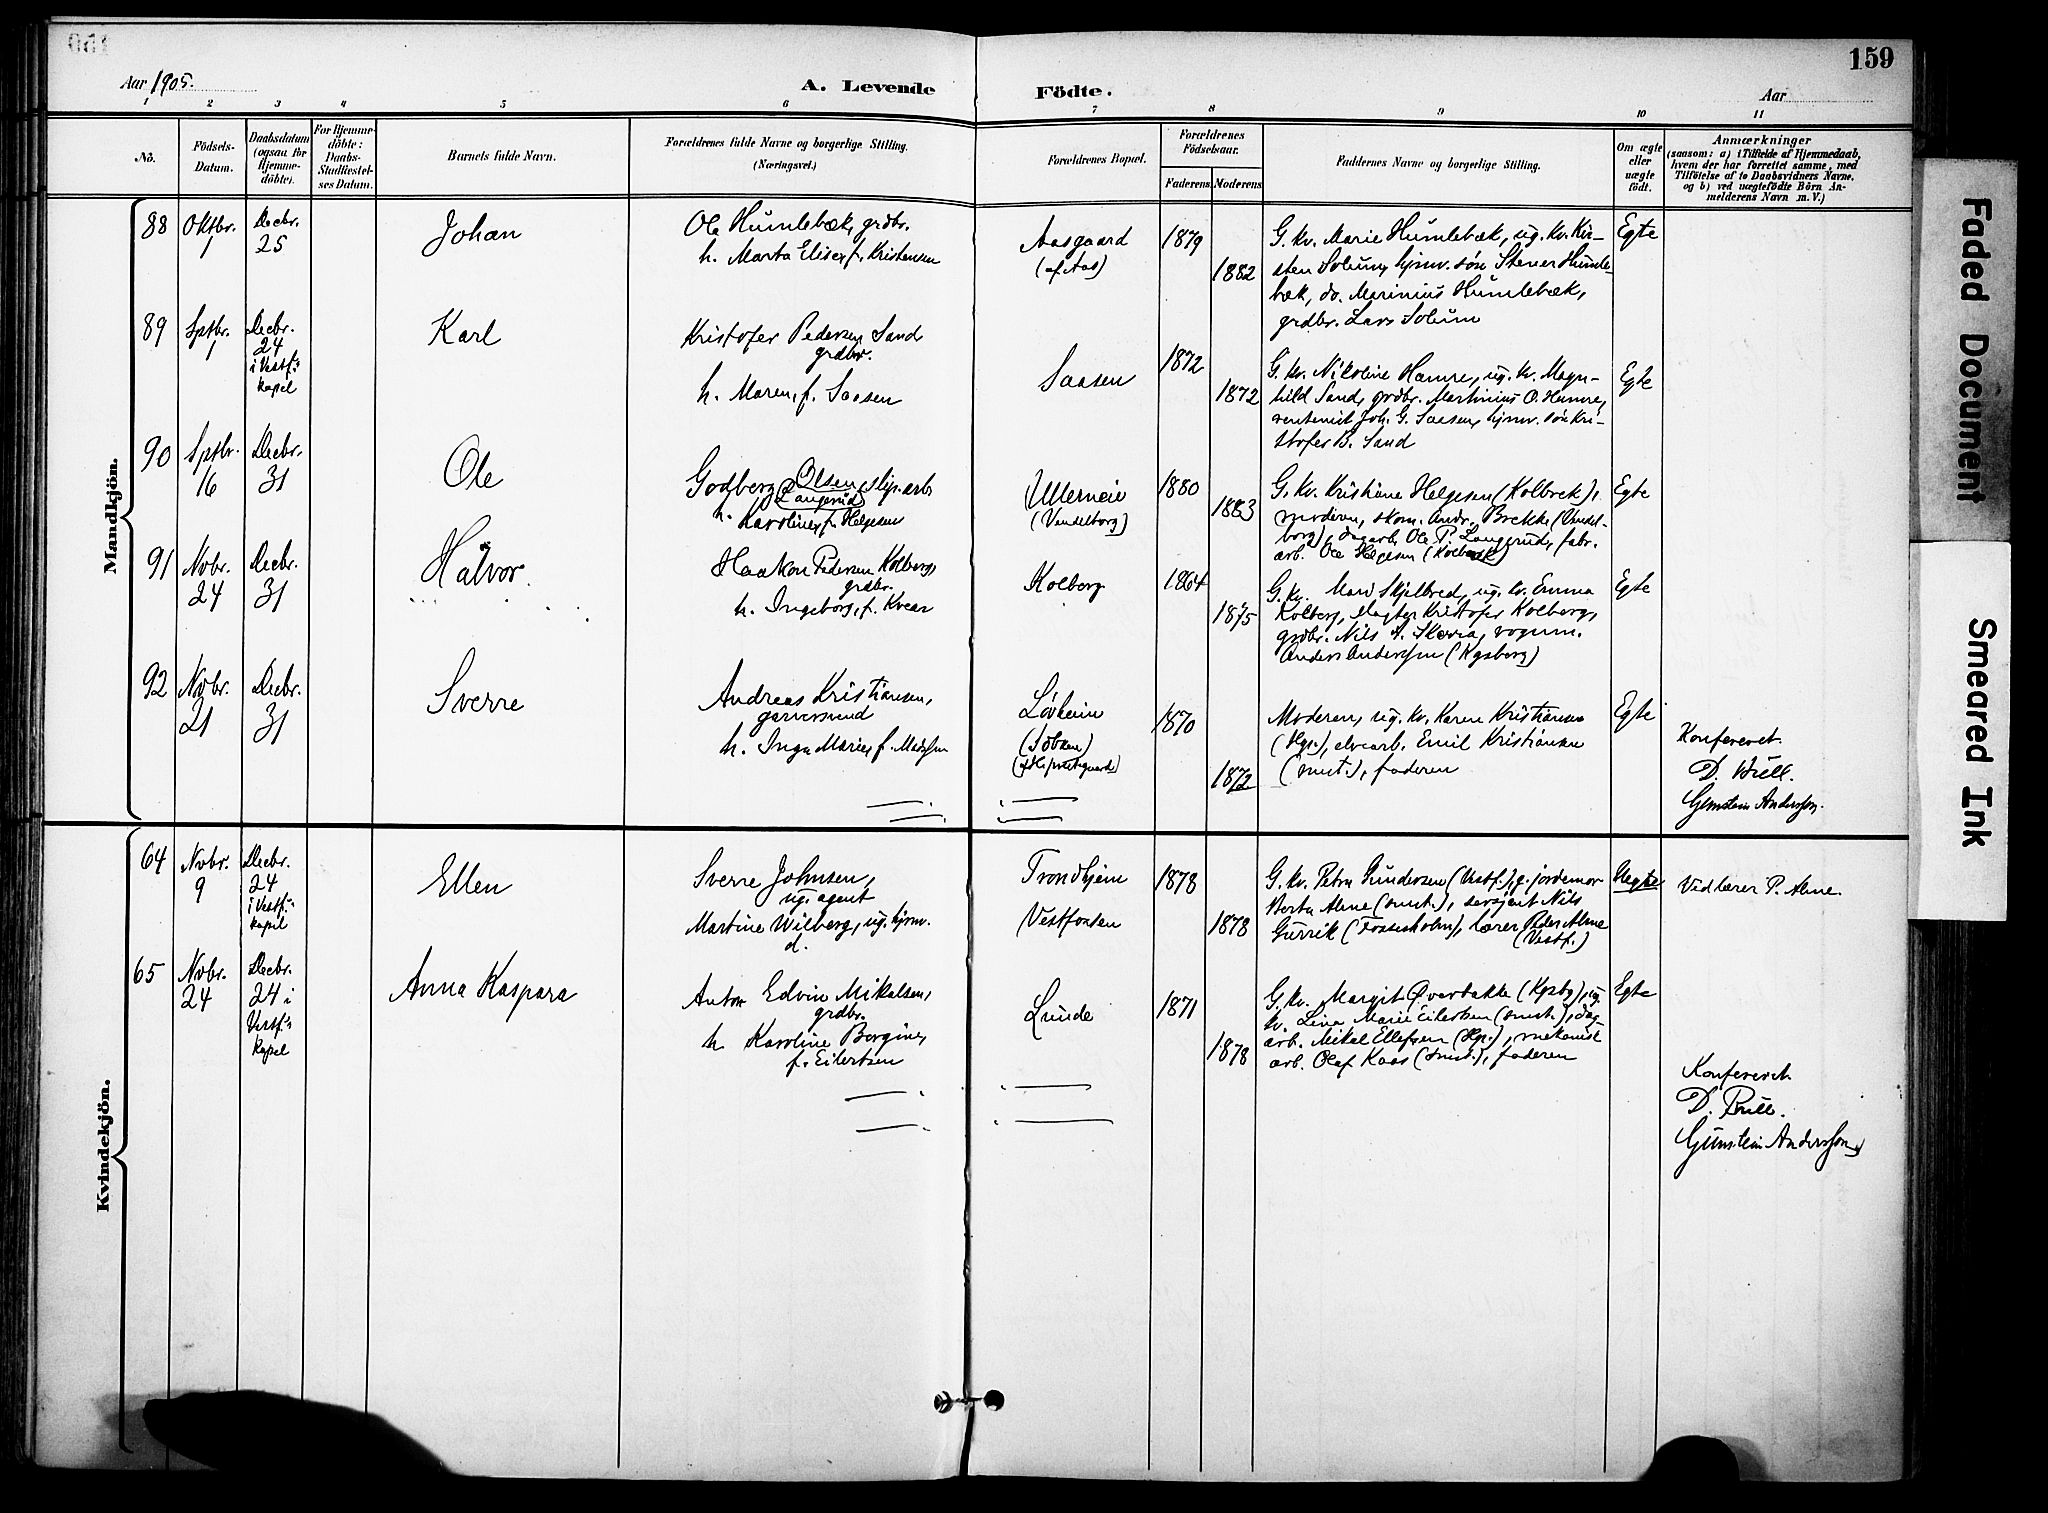 159
Aar 1905.
A. Levende Födte.
Aar
1 2 3 4 5 6 7 8 9 10 11
No.
Födsels-
Datum.
Daabsdatum
(ogsaa for
Hjemme-
döbte).
For Hjemme-
döbte:
Daabs-
Stadfæstel-
ses Datum.
Barnets fulde Navn.
Forældrenes fulde Navne og borgerlige Stilling.
(Næringsvei.)
Forældrenes Bopæl.
Forældrenes
Födselsaar.
Faderens. Moderens.
Faddernes Navne og borgerlige Stilling.
Om ægte
eller
uægte
födt.
Anmærkninger
(saasom: a) i Tilfælde af Hjemmedaab,
hvem der har forrettet samme, med
Tilföielse af to Daabsvidners Navne,
og b) ved uægtefödte Börn An-
melderens Navn m. V.)
Mandkjön.
88
Oktbr.
1
Decbr.
25
Johan
Ole Humlebæk, grdbr.
h. Marta Elise, f. Kristensen
Aasgaard
(af Aas)
1879
1882
G. kv. Marie Humlebæk, ug. kv. Kir-
sten Solum, hjmv. søn Stener Humle-
bæk, do. Marinius Humlebæk,
grdbr. Lars Solum
Egte
89
Sptbr.
1
Decbr.
24
i Vestf.'s
kapel
Karl
Kristofer Pedersen Sand
grdbr.
h. Maren, f. Saasen
Saasen
1872
1872
G. kv. Nikoline Hamre, ug. kv. Magn-
hild Sand, grdbr. Martinius O. Hamre,
rentenist Joh. G. Saasen, hjmv. søn Kri-
stofer B. Sand
Egte
90
Sptbr.
16
Decbr.
31
Ole
Godberg Olsen, slip.arb.
Langerud
h. Karoline, f. Helgesen
Ullerneie
(Vendelborg)
1880
1883
G. kv. Kristine Helgesen (Kolbrek),
moderen, skom. Andr. Brekke (Vendel-
borg), dagarb. Ole P. Langerud, fabr.
arb. Ole Helgesen (Kolbræk)
Egte
91
Novbr.
24
Decbr.
31
Halvor.
Haakon Pedersen Kolberg,
grdbr.
h. Ingeborg, f. Kvear
Kolberg
1864
1875
G. kv. Mari Skjelbred, ug. kv. Emma
Kolberg, slagter Kristofer Kolberg,
grdbr. Nils A. Skarra, vognm.
Anders Anderssen (Kgsberg)
Egte
92
Novbr.
21
Decbr.
31
Sverre
Andreas Kristiansen,
garversvend
h. Inga Marie, f. Madssen
Løvheim
(Iobsen)
1870
1872
Moderen, ug. kv. Karen Kristiansen
(Hgs.), elvearb. Emil Kristiansen
(smst.), faderen
Egte
Konfereret.
D. Büll.
Gunstein Anderssen.
Kvindekjön.
64
Novbr.
9
Decbr.
24
i Vestf.'s
kapel
Ellen
Sverre Johnsen,
ug. agent
Martine Wilberg, ug. hjmv.
d.
Trondhjem
Vestfossen
1878
1878
G. kv. Petra Gundersen (Vestf.), g. jordemor
Berta Alme (smst.), sersjent Nils
Gurrik (Fossesholm), lærer Peder Alme
(Vestf.)
Uegte
Ved lærer P. Alme.
65
Novbr.
24
Decbr.
24 i
Vestf.'s
kapel
Anna Kaspara
Anton Edvin Mikalsen,
grdbr.
h. Karoline Borgine,
f. Eilertsen
Lunde
1871
1878
G. kv. Margit Øverbakke (Kgsbg), ug.
kv. Lina Marie Eilertsen (smst.), dag-
arb. Mikal Ellefsen (Hp.), mekanisk
arb. Olaf Kaas (smst.), faderen
Egte
Konfereret.
D. Büll.
Gunstein Anderssen.
Faded Document
Smeared Ink